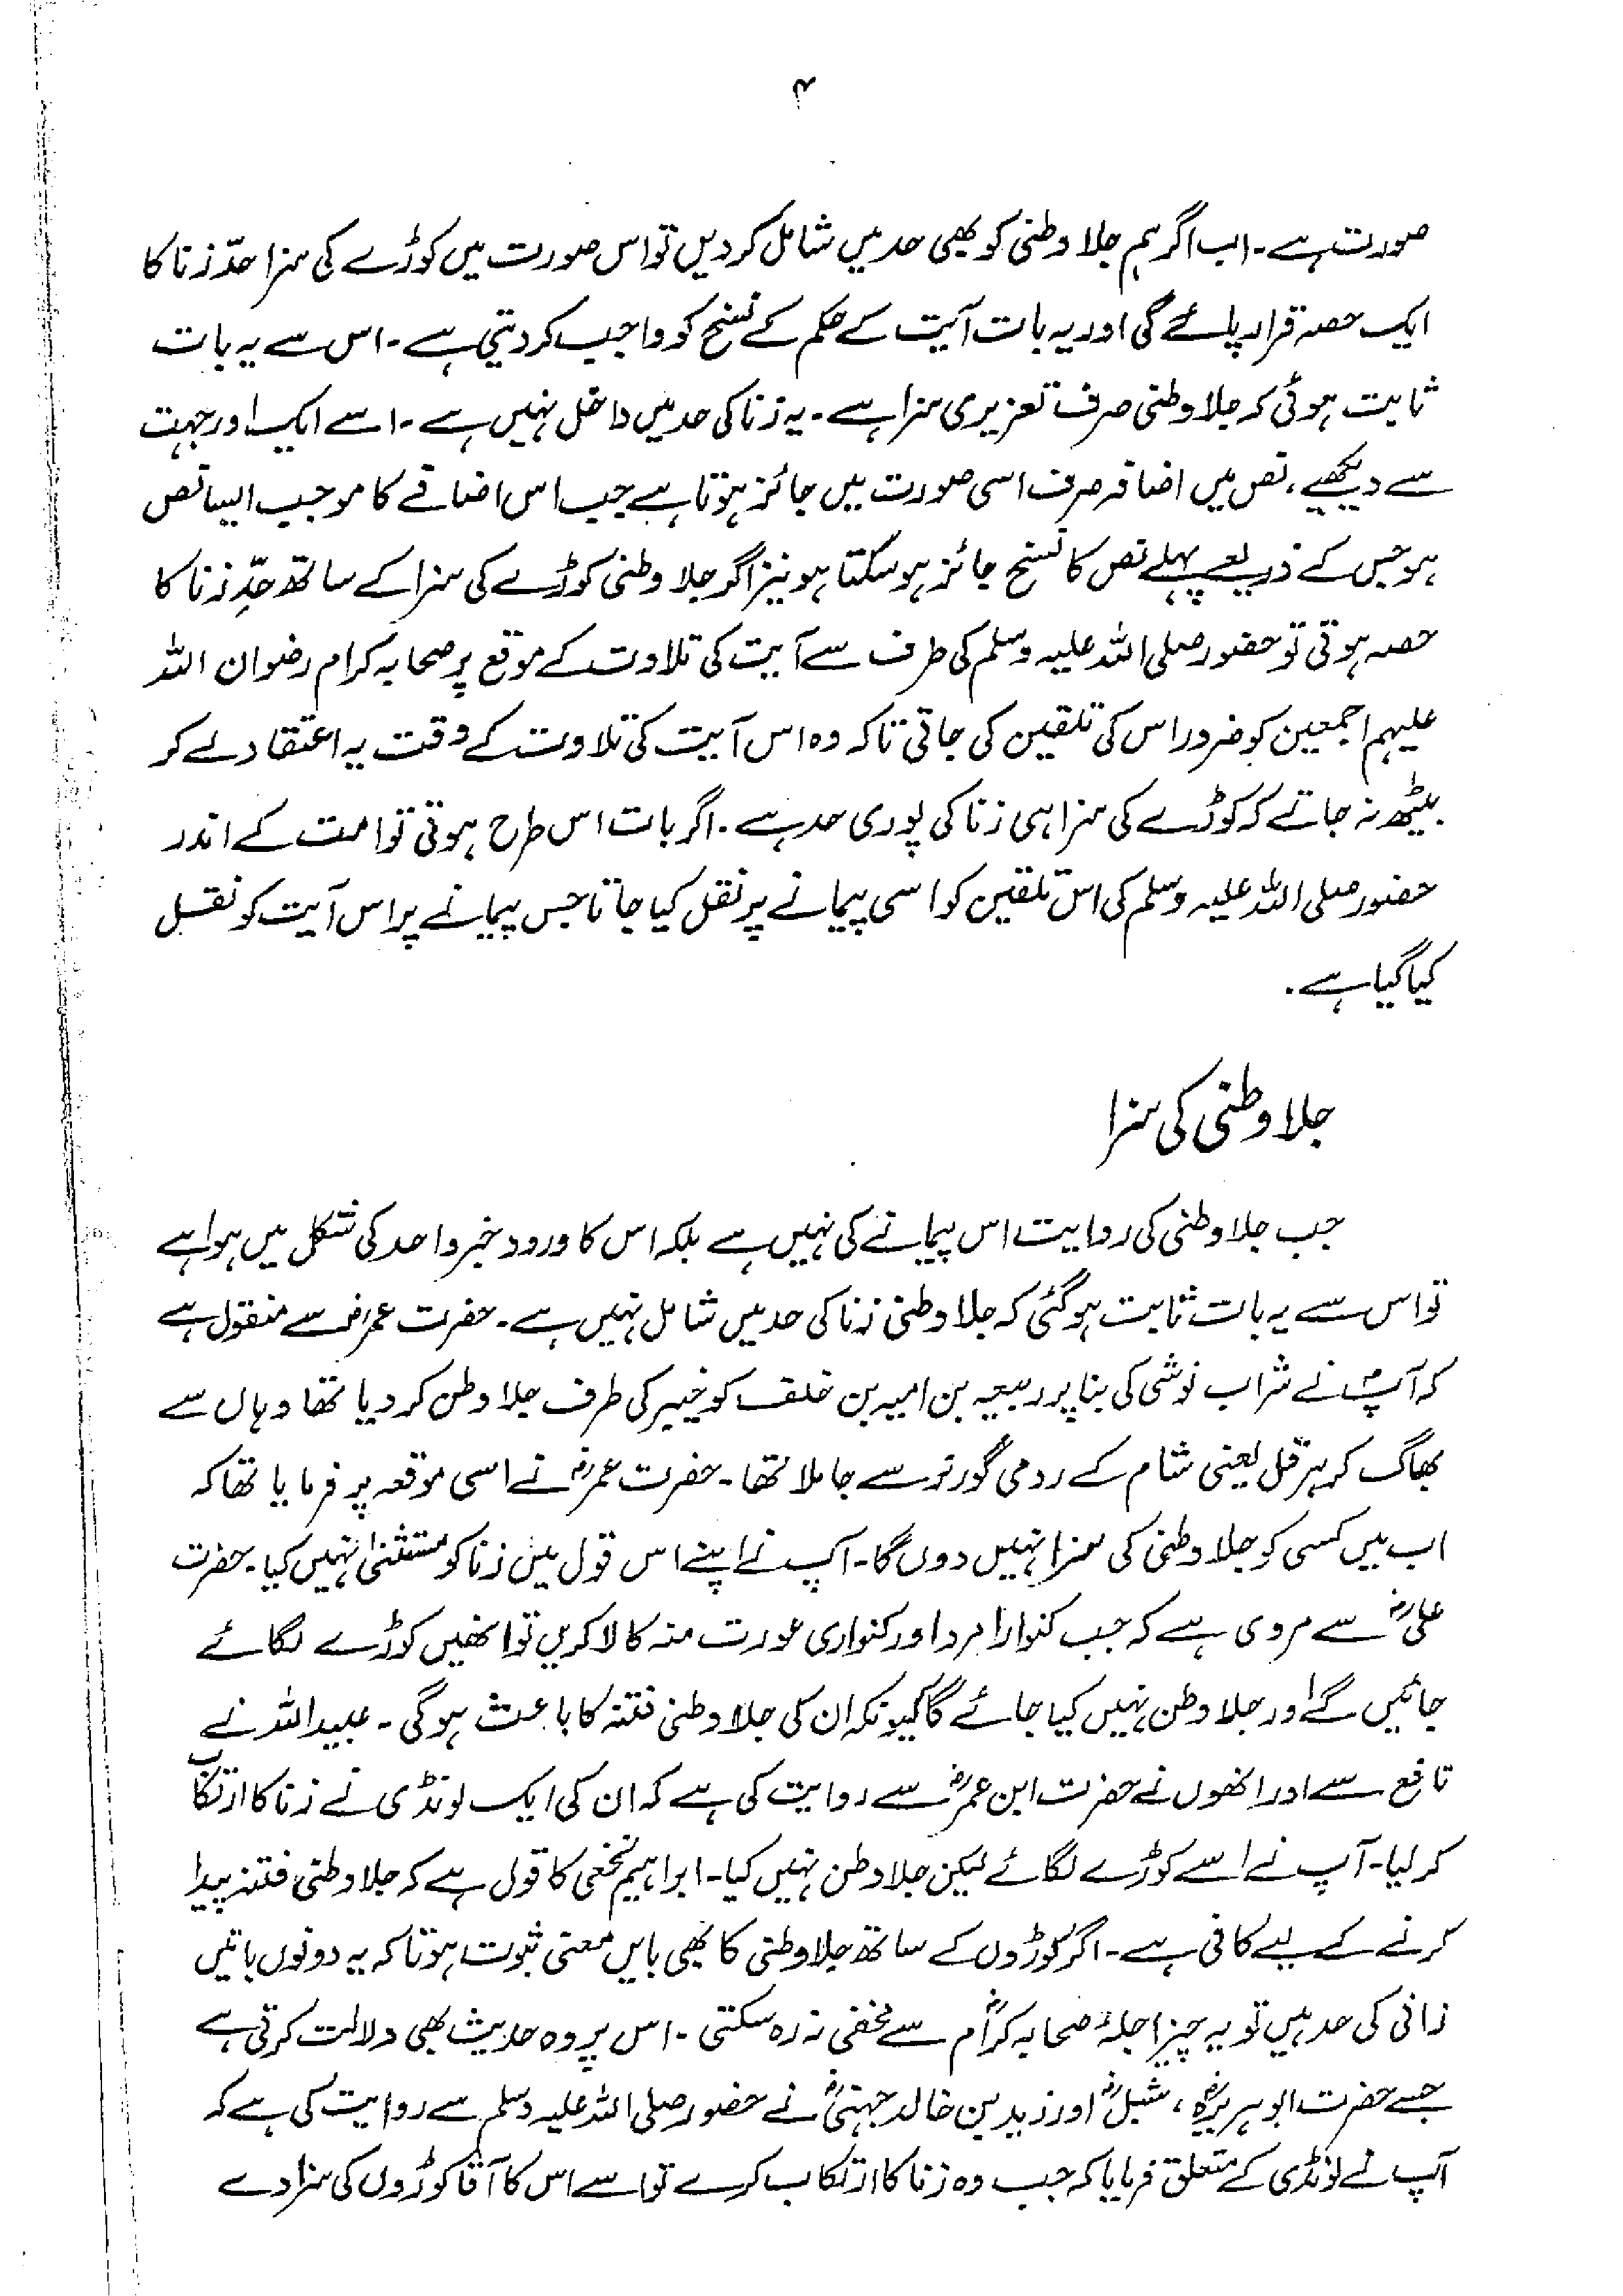 ۴
صورت ہے۔ اب اگر ہم جلا وطنی کو بھی حد میں شامل کر دیں تو اس صورت میں کوڑے کی سزا حدّ زنا کا
ایک حصہ قرار پائے گی اور یہ بات آیت کے حکم کے نسخ کو واجب کر دیتی ہے۔ اس سے یہ بات
ثابت ہوئی کہ جلا وطنی صرف تعزیری سزا ہے۔ یہ زنا کی حد میں داخل نہیں ہے۔ اسے ایک اور جہت
سے دیکھیے، نص میں اضافہ صرف اسی صورت میں جائز ہوتا ہے جب اس اضافے کا موجب ایسا نص
ہو جس کے ذریعے پہلے نص کا نسخ جائز ہو سکتا ہو نیز اگر جلا وطنی کوڑے کی سزا کے ساتھ حدِّ زنا کا
حصہ ہوتی تو حضور صلی اللہ علیہ وسلم کی طرف سے آیت کی تلاوت کے موقع پر صحابہ کرام رضوان اللہ
علیہم اجمعین کو ضرور اس کی تلقین کی جاتی تاکہ وہ اس آیت کی تلاوت کے وقت یہ اعتقاد لے کر
بیٹھ نہ جاتے کہ کوڑے کی سزا ہی زنا کی پوری حد ہے۔ اگر بات اس طرح ہوتی تو امت کے اندر
حضور صلی اللہ علیہ وسلم کی اس تلقین کو اسی پیمانے پر نقل کیا جاتا جس پیمانے پر اس آیت کو نقل
کیا گیا ہے۔
جلا وطنی کی سزا
جب جلا وطنی کی روایت اس پیمانے کی نہیں ہے بلکہ اس کا ورود خبر واحد کی شکل میں ہوا ہے
تو اس سے یہ بات ثابت ہو گئی کہ جلا وطنی زنا کی حد میں شامل نہیں ہے۔ حضرت عمرؓ سے منقول ہے
کہ آپؓ نے شراب نوشی کی بنا پر ربیعہ بن امیہ بن خلف کو خیبر کی طرف جلا وطن کر دیا تھا وہاں سے
بھاگ کر ہرقل یعنی شام کے رومی گورنر سے جا ملا تھا۔ حضرت عمرؓ نے اسی موقعہ پر فرمایا تھا کہ
اب میں کسی کو جلا وطنی کی سزا نہیں دوں گا۔ آپ نے اپنے اس قول میں زنا کو مستثنیٰ نہیں کیا۔ حضرت
علیؓ سے مروی ہے کہ جب کنوارا مرد اور کنواری عورت منہ کالا کریں تو انھیں کوڑے لگائے
جائیں گے اور جلا وطن نہیں کیا جائے گا کیونکہ ان کی جلا وطنی فتنہ کا باعث ہوگی۔ عبید اللہ نے
نافع سے اور انھوں نے حضرت ابن عمرؓ سے روایت کی ہے کہ ان کی ایک لونڈی نے زنا کا ارتکاب
کر لیا۔ آپ نے اسے کوڑے لگائے لیکن جلا وطن نہیں کیا۔ ابراہیم نخعی کا قول ہے کہ جلا وطنی فتنہ پیدا
کرنے کے لیے کافی ہے۔ اگر کوڑوں کے ساتھ جلا وطنی کا بھی بایں معنی ثبوت ہوتا کہ یہ دونوں باتیں
زانی کی حد ہیں تو یہ چیز اجلۂ صحابہ کرامؓ سے مخفی نہ رہ سکتی۔ اس پر وہ حدیث بھی دلالت کرتی ہے
جسے حضرت ابوہریرہؓ، شبلؓ اور زید بن خالد جہنیؓ نے حضور صلی اللہ علیہ وسلم سے روایت کی ہے کہ
آپ نے لونڈی کے متعلق فرمایا کہ جب وہ زنا کا ارتکاب کرے تو اسے اس کا آقا کوڑوں کی سزا دے